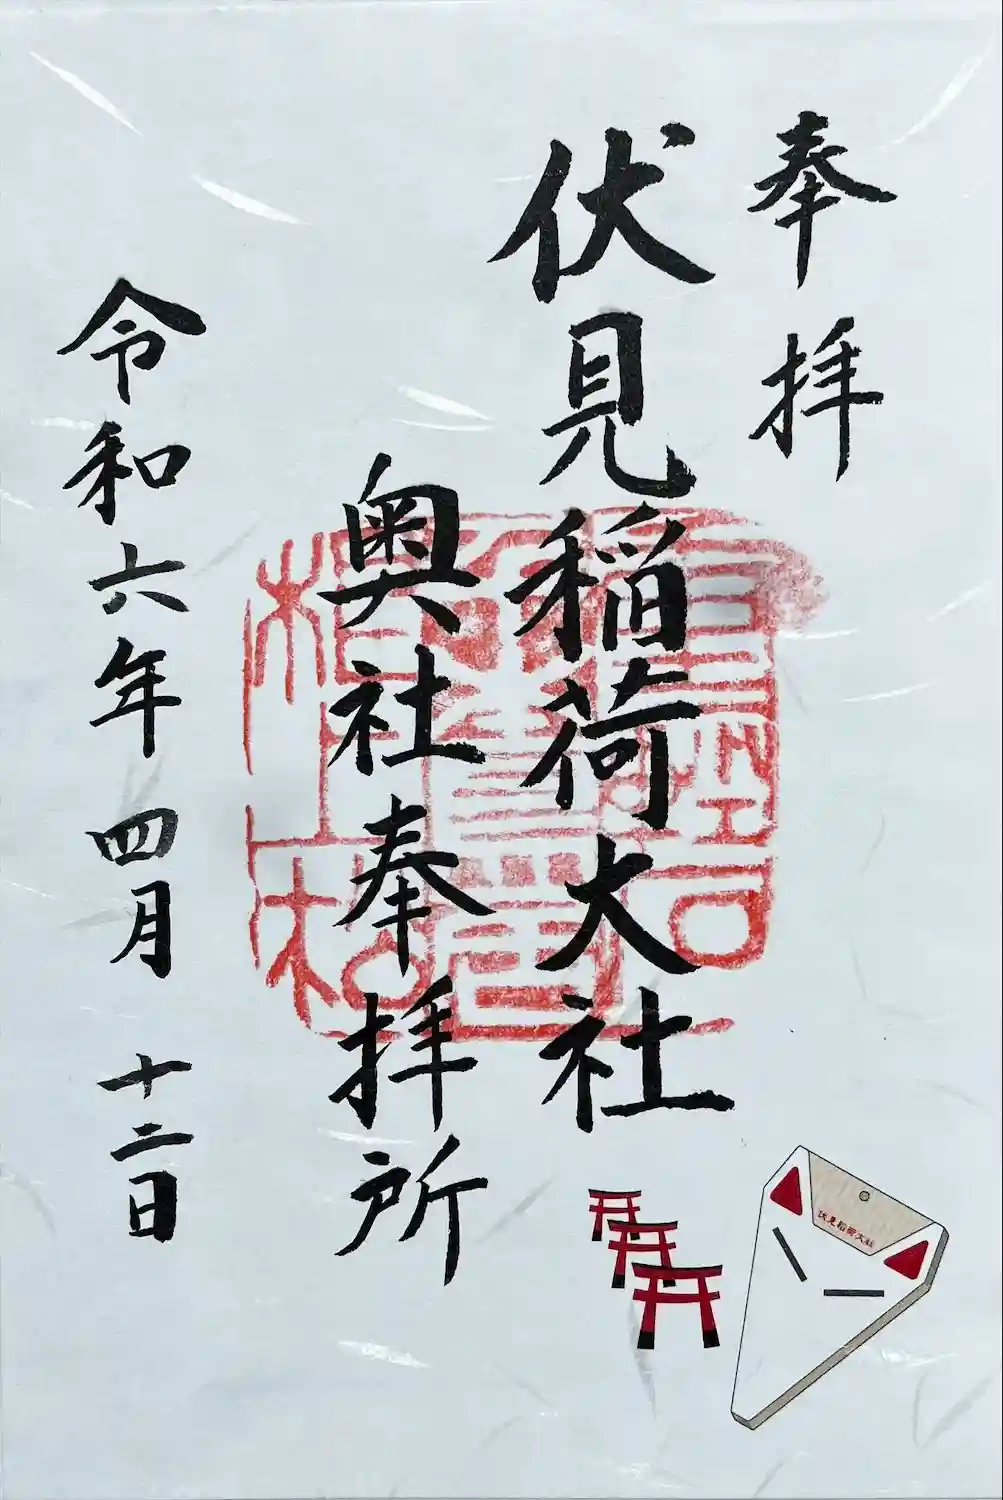 奉拝
伏見稲荷大社
奥社奉拝所
令和六年四月十二日
伏見稲荷大社